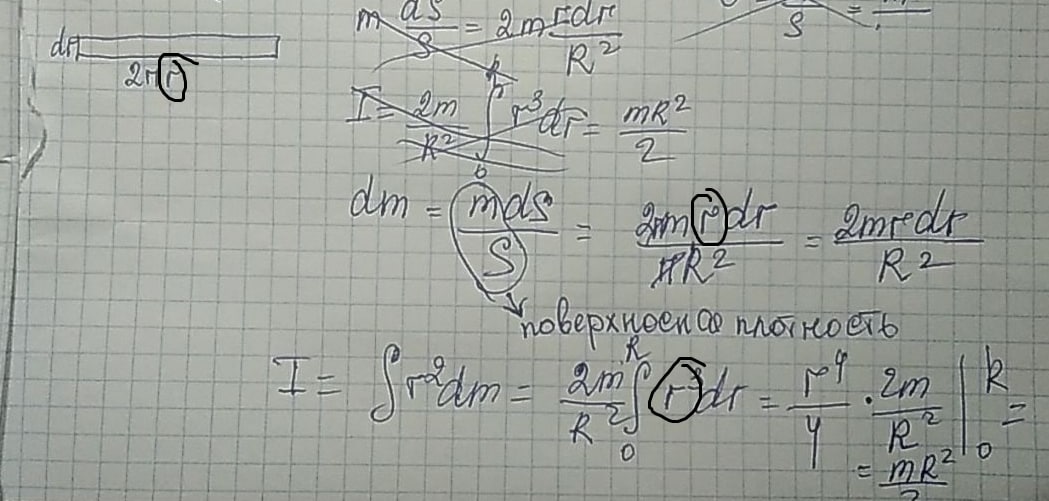 m dS/S = 2m rdr/R²
dr
2πr
I = 2m/R² ∫₀ᴿ r³dr = mR²/2
dm = mdS/S = 2πm r dr/πR² = 2mrdr/R²
поверхностная плотность
I = ∫r²dm = 2m/R² ∫₀ᴿ r³dr = r⁴/4 · 2m/R² |₀ᴿ =
= mR²/2